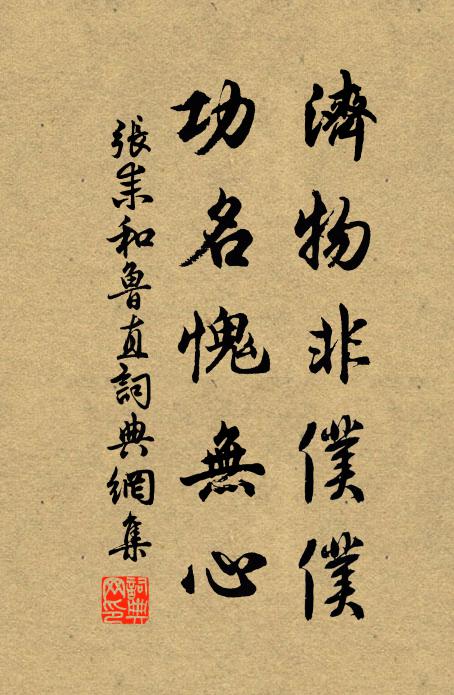 濟物非僕僕
功名愧無心
張耒和魯直詞典網集
詞典網印